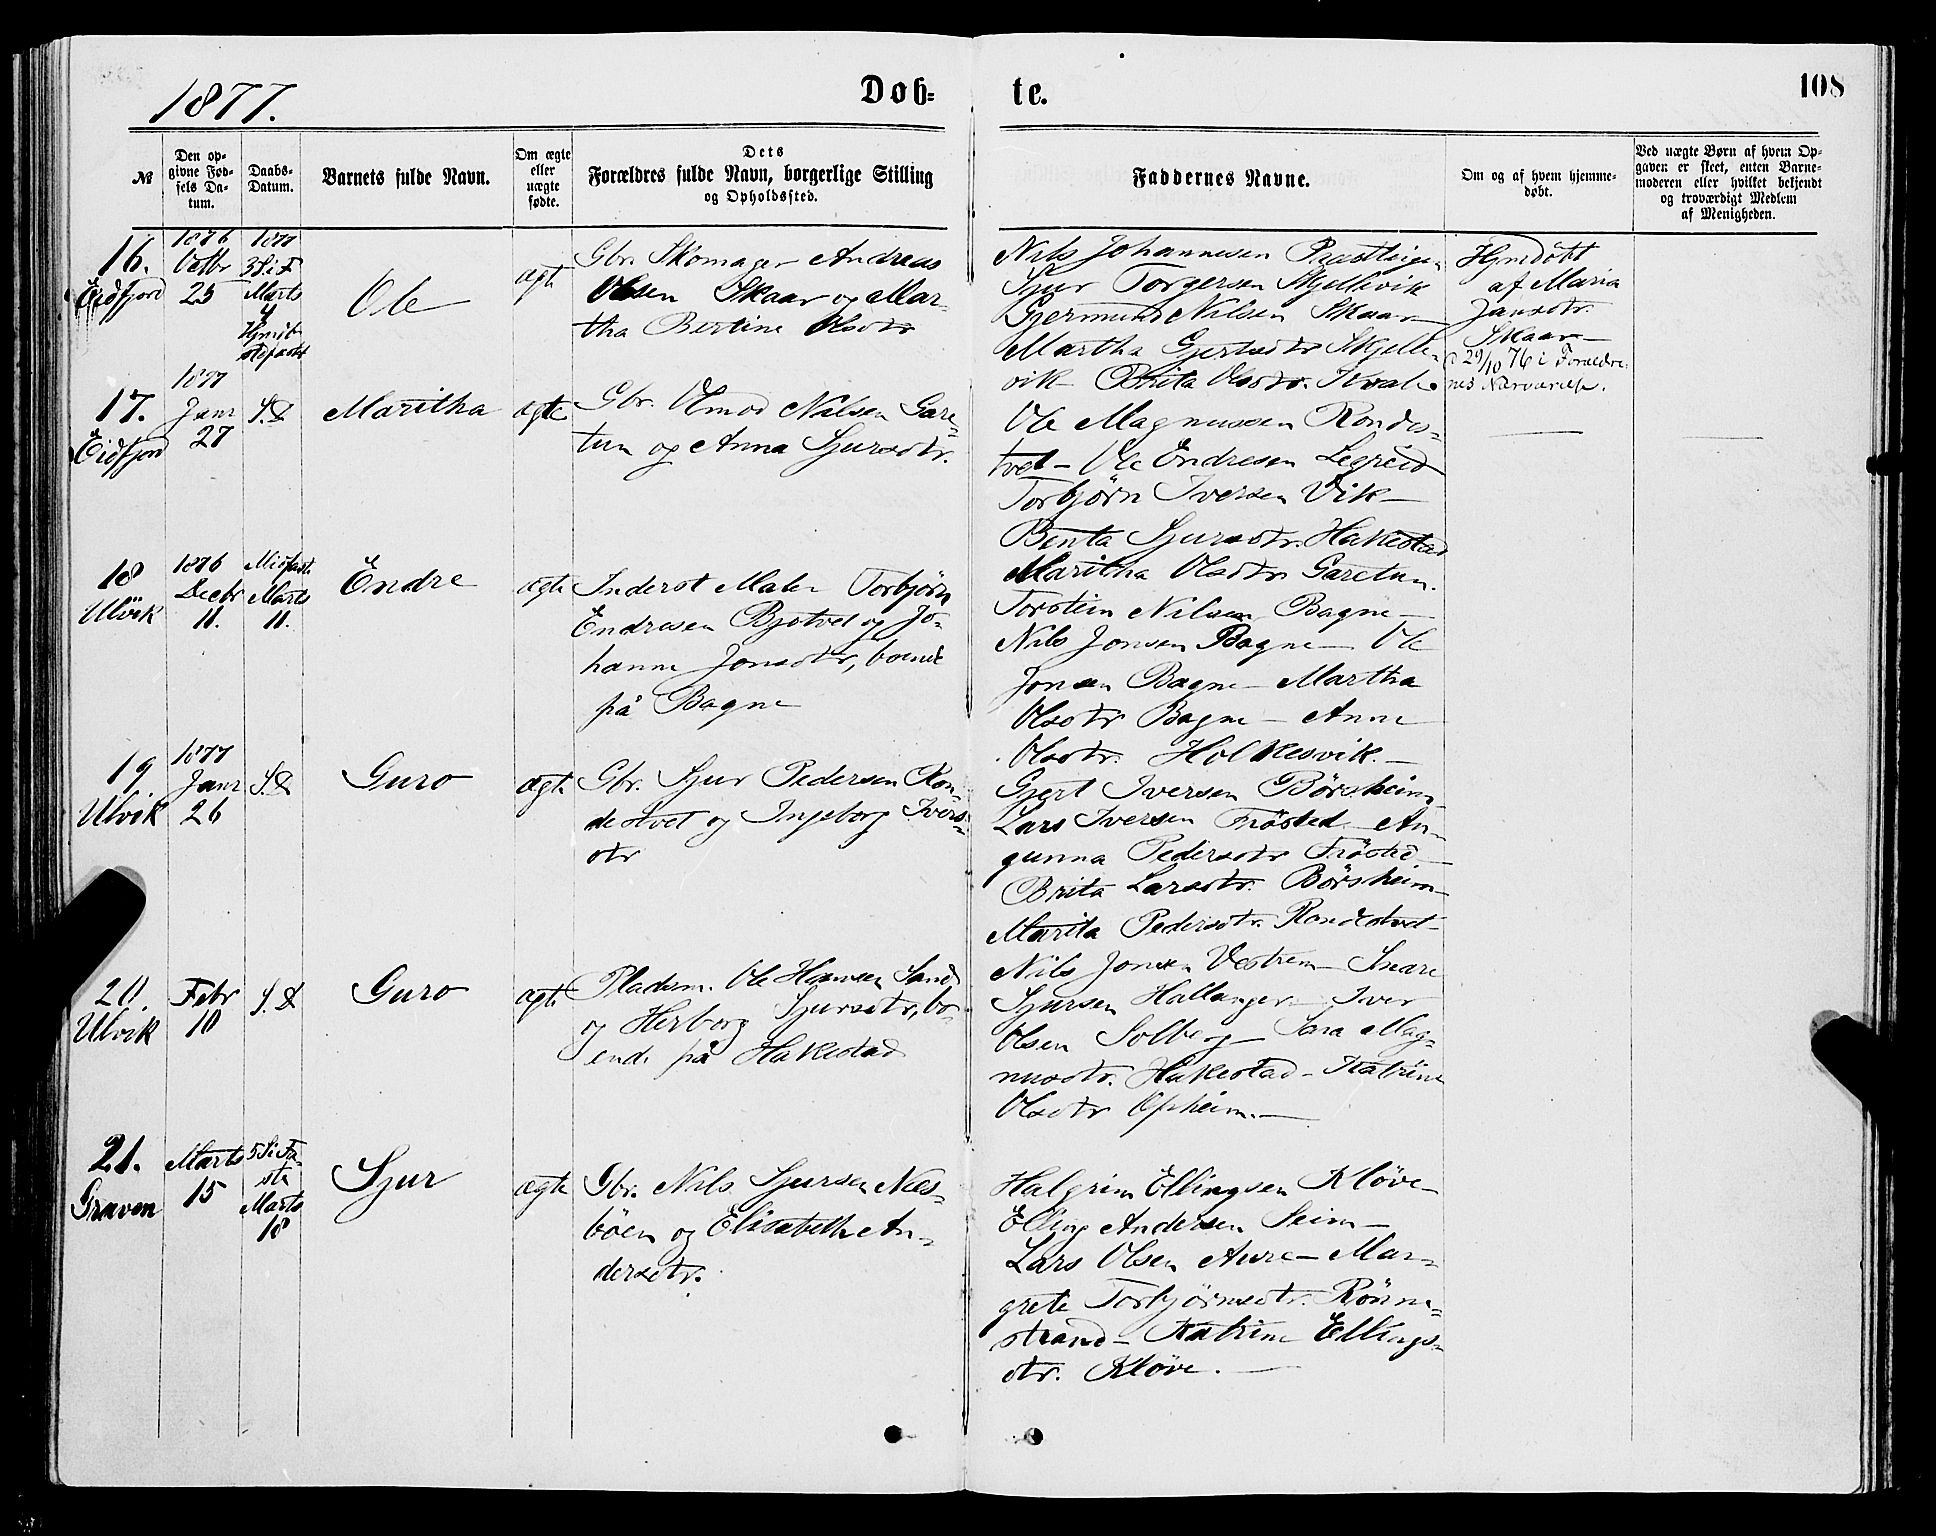 1877.
Døb-
te.
108
№
Den op-
givne Fød-
sels Da-
tum.
Daabs-
Datum.
Barnets fulde Navn.
Om ægte
eller
uægte
fødte.
Dets
Forældres fulde Navn, borgerlige Stilling
og Opholdssted.
Faddernes Navne.
Om og af hvem hjemme-
døbt.
Ved uægte Børn af hvem Op-
gaven er skeet, enten Barne-
moderen eller hvilket bekjendt
og troværdigt Medlem
af Menigheden.
16.
Eidfjord
1876
Octbr
25
1877
3 S i F
Marts
4
Hjmdt
stadfæstet
Ole
ægte
Gbr. Skomager Andreas
Olsen Skaar og Mar-
tha Bertine Olsdtr
Nils Johannesen
Sjur Torgersen Skjelvik
Gjermund Nilsen Skaar
Martha Gjertsdtr Skjel-
vik Brita Olsdtr. Kvale
Hjmdöbt
af Maria
Jansdtr.
Skaar
29/10 76 i Forældre-
nes Nærværelse.
17.
Eidfjord
1877
Janr
27
S.D.
Maritha
ægte
Gbr. Amod Nilsen Gare-
tun og Anna Sjursdtr.
Ole Magnussen Rondes-
tvet - Ole Endresen Legreid
Torbjörn Iversen Vik -
Benta Sjursdtr. Hakestad
Maritha Olsdtr Garetun.
18
Ulvik
1876
Decbr
11.
Midfaste
Marts
11.
Endre
ægte
Inderst Maler Torbjörn
Endresen Bjotvet og Jo-
hanne Jonsdtr, boende
på Bagne
Torstein Nilsen Bagne -
Nils Jonsen Bagne - Ole
Jonsen Bagne - Martha
Olsdtr Bagne - Anne
Olsdtr. Holkesvik. -
19
Ulvik
1877
Janr
26
S.D.
Guro
ægte
Gbr. Sjur Pedersen Ron-
destvet og Ingeborg Ivers-
dtr
Gjert Iversen Börsheim
Lars Iversen Trösted - An-
gunna Pedersdtr Trösted
Brita Larsdtr. Börsheim
Marita Pedersdtr. Rondestvet -
20.
Ulvik
Febr
10
S.D.
Guro
ægte
Pladsm. Ole Hansen Sand
og Herborg Sjursdtr, bo-
ende på Hakestad
Nils Jonsen Vestrem - Snare
Sjursen Hallanger - Iver
Olsen Solberg - Sara Mag-
nusdtr. Hakestad - Katrine
Olsdtr Opheim. -
21.
Graven
Marts
15
5 S i Fa-
ste
Marts
18
Sjur
ægte
Gbr. Nils Sjursen Næs-
böen og Elisabeth An-
dersdtr.
Halgrim Ellingsen Klöve -
Elling Andersen Seim -
Lars Olsen Aure - Mar-
grete Torbjörnsdtr. Rönne-
strand - Katrine Ellings-
dtr. Klöve. -